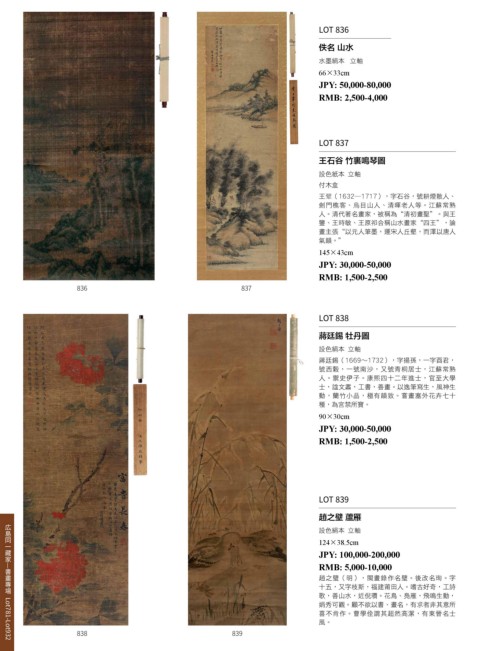 LOT 836
佚名 山水
水墨絹本 立軸
66×33cm
JPY: 50,000-80,000
RMB: 2,500-4,000
LOT 837
王石谷 竹裏鳴琴圖
設色紙本 立軸
付木盒
王翬（1632—1717），字石谷，號耕煙散人、
劍門樵客、烏目山人、清暉老人等。江蘇常熟
人。清代著名畫家，被稱為“清初畫聖”。與王
鑒、王時敏、王原祁合稱山水畫家“四王”，論
畫主張“以元人筆墨，運宋人丘壑，而澤以唐人
氣韻。”
145×43cm
JPY: 30,000-50,000
RMB: 1,500-2,500
836
837
LOT 838
蔣廷錫 牡丹圖
設色絹本 立軸
蔣廷錫（1669～1732），字揚孫，一字酉君，
號西穀，一號南沙，又號青桐居士。江蘇常熟
人。
康熙四十二年進士，官至大學
士，謚文肅，工書、善畫。以逸筆寫生，風神生
動，蘭竹小品，極有韻致。
畫塞外花卉七十
種，為宮禁所寶。
90×30cm
JPY: 30,000-50,000
RMB: 1,500-2,500
LOT 839
趙之璧 蘆雁
設色絹本 立軸
124×38.5cm
JPY: 100,000-200,000
RMB: 5,000-10,000
趙之璧（明），閩畫錄作名璧。後改名珣。字
十五，又字枝斯，福建莆田人。嗜古好奇，工詩
歌，善山水，近倪瓚。花鳥、蘆雁，飛鳴生動，
娟秀可觀。顧不欲以書、畫名，有求者非其意所
喜不肯作。曹學佺謂其超然高潔，有東晉名士
風。
838
839
広島同一藏家—書畫專場 Lot781-Lot932